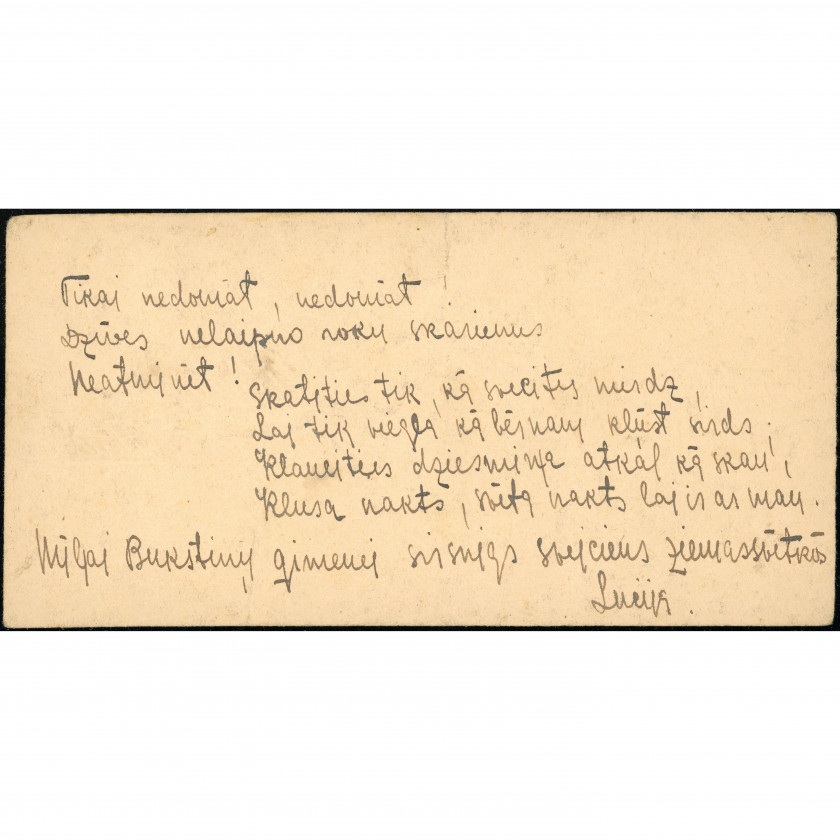 Tikai nedomāt, nedomāt!
Dzīves nelaipno roku skārienus
Neatminēt!
Skatities tik, kā svecītes mirdz,
Lai tik viegla kā bērnam kļūst sirds;
Klausities dziesmiņa atkal kā skan,
Klusa nakts, svēta nakts lai ir ar man.
Mīļai Bukstiņu ģimenei sirsnīgs sveiciens Ziemassvētkos
Lucija.